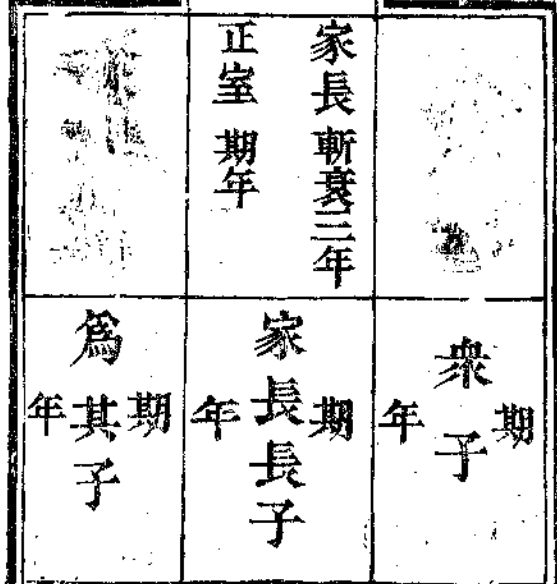 家長斬衰三年
正室 期年
衆子
期年
家長長子
期年
爲其子
期年